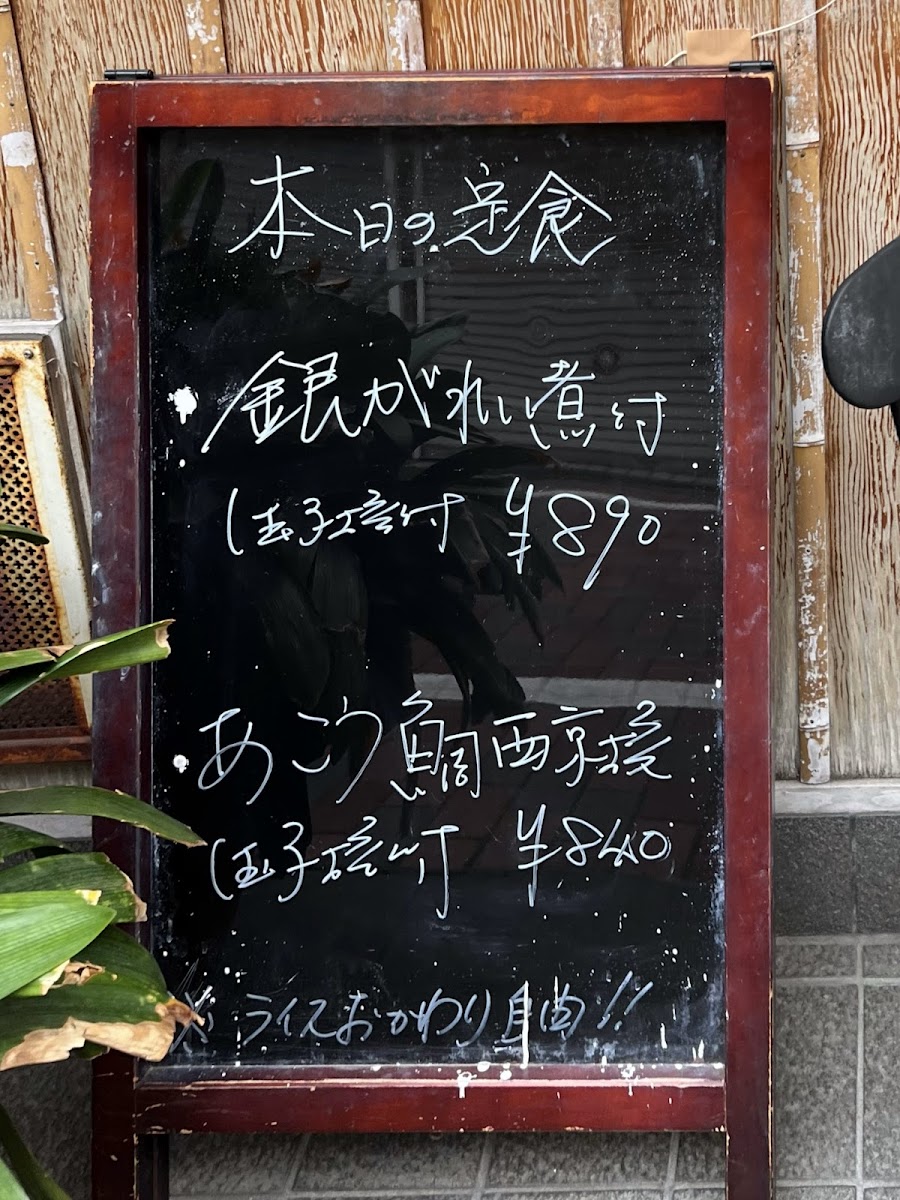 本日の定食
・銀がれい煮付
(玉子焼付 ¥890
・あこう鯛西京焼
(玉子焼付 ¥840
※ライスおかわり自由!!